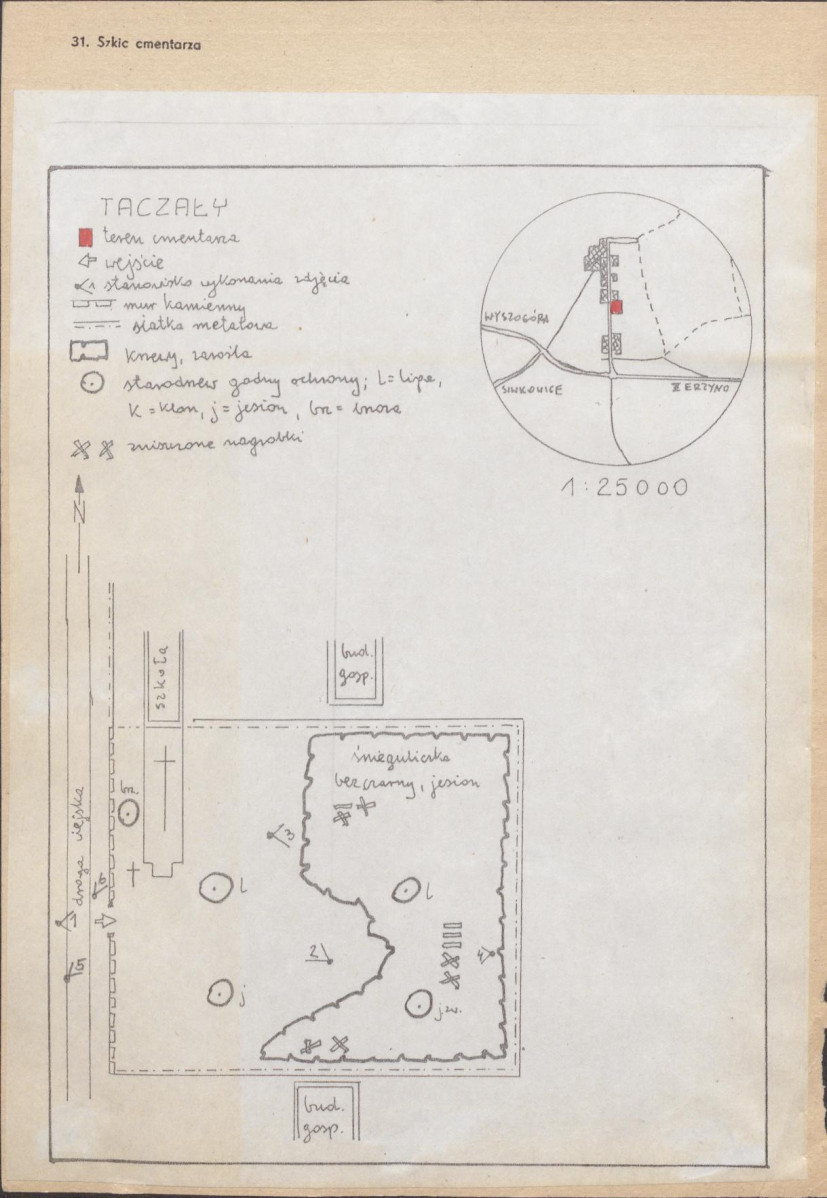 31. Szkic cmentarza
TACZAŁY
teren cmentarza
wejście
stanowisko wykonania zdjęcia
mur kamienny
siatka metalowa
krzewy, zarośla
starodrzew godny ochrony; l = lipa,
k = klon, j = jesion, brz = brzoza
zniszczone nagrobki
WYSZOGÓRA
SIWKOWICE
ŻERZYNO
1:25000
N
szkoła
bud.
gosp.
śnieguliczka
bez czarny, jesion
brz.
droga wiejska
3
6
l
l
1
2
4
5
j
jw.
bud.
gosp.